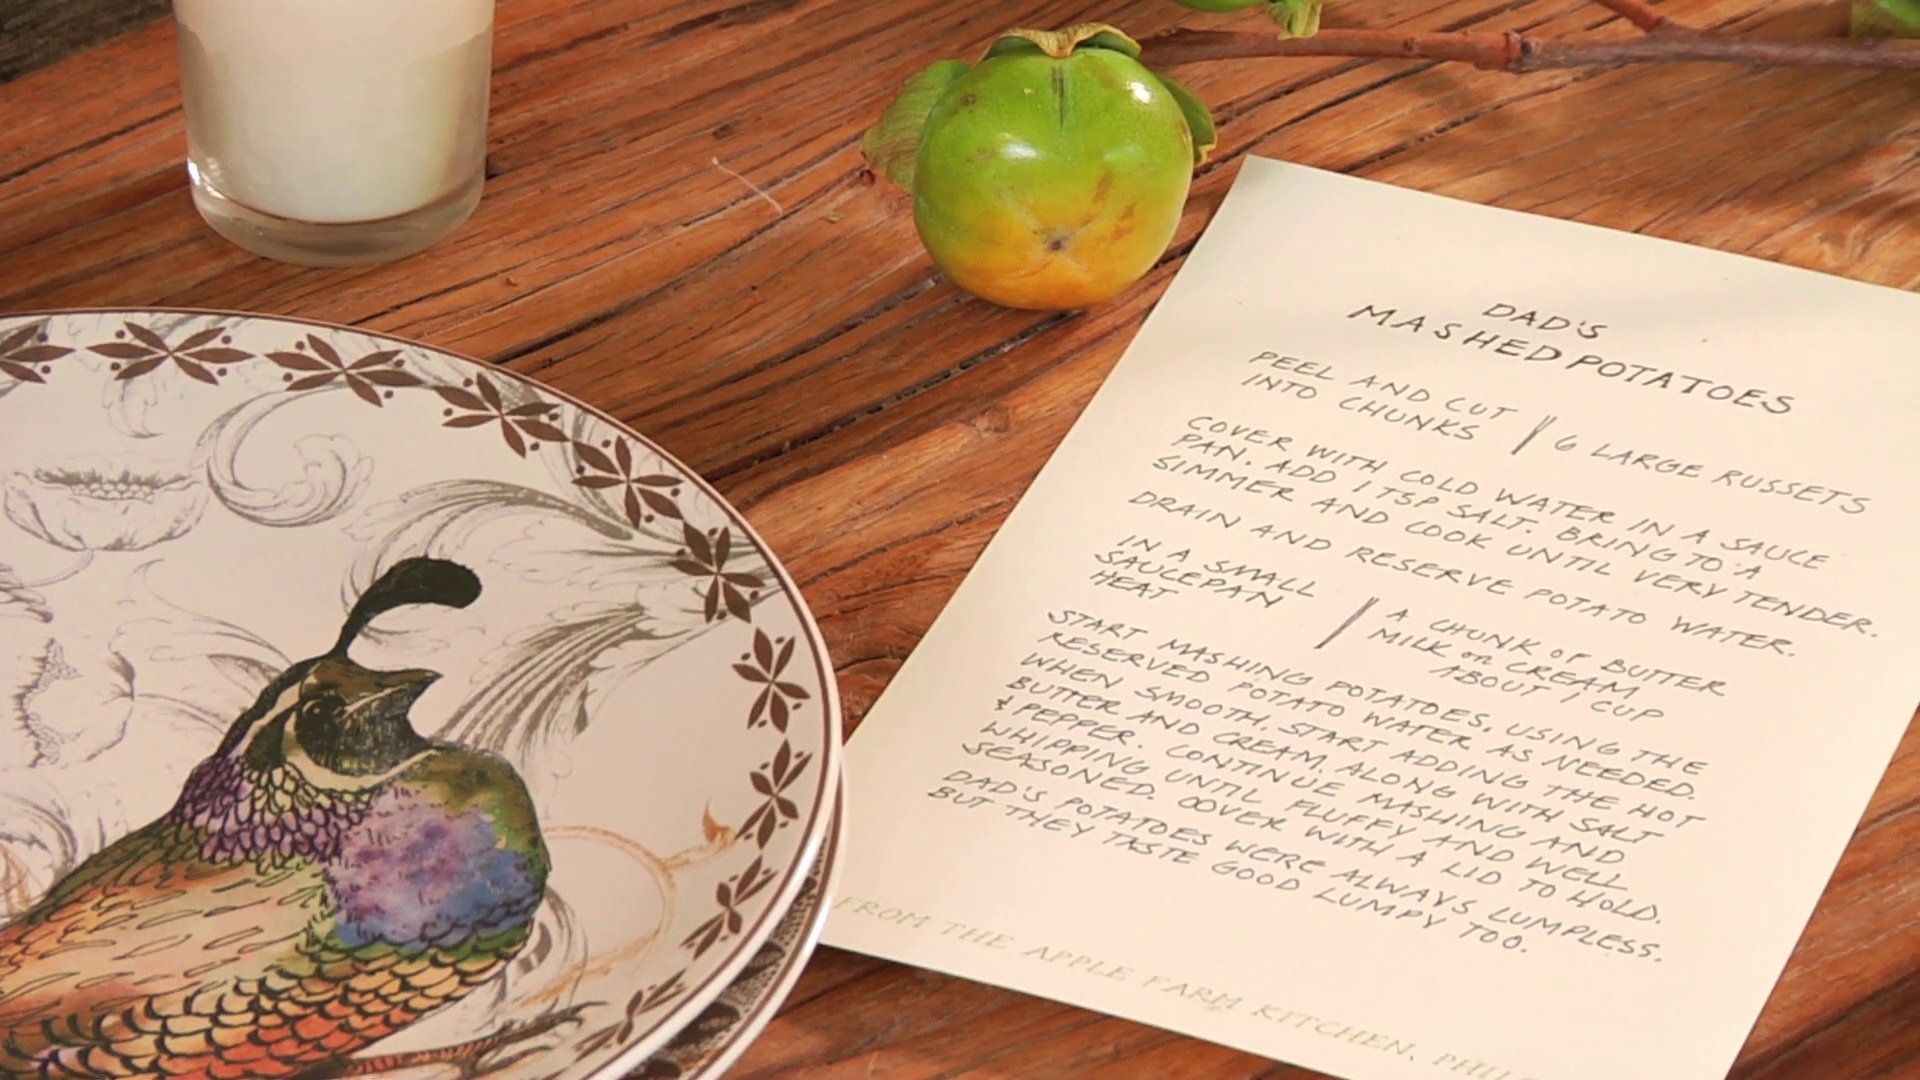 DAD'S
MASHED POTATOES
PEEL AND CUT
INTO CHUNKS / 6 LARGE RUSSETS
COVER WITH COLD WATER IN A SAUCE
PAN. ADD 1 TSP SALT. BRING TO A
SIMMER AND COOK UNTIL VERY TENDER.
DRAIN AND RESERVE POTATO WATER.
IN A SMALL
SAUCEPAN
HEAT / A CHUNK OF BUTTER
MILK or CREAM
ABOUT 1 CUP
START MASHING POTATOES, USING THE
RESERVED POTATO WATER AS NEEDED.
WHEN SMOOTH, START ADDING THE HOT
BUTTER AND CREAM, ALONG WITH SALT
& PEPPER. CONTINUE MASHING AND
WHIPPING UNTIL FLUFFY AND WELL
SEASONED. COVER WITH A LID TO HOLD.
DAD'S POTATOES WERE ALWAYS LUMPLESS.
BUT THEY TASTE GOOD LUMPY TOO.
FROM THE APPLE FARM KITCHEN, PHIL